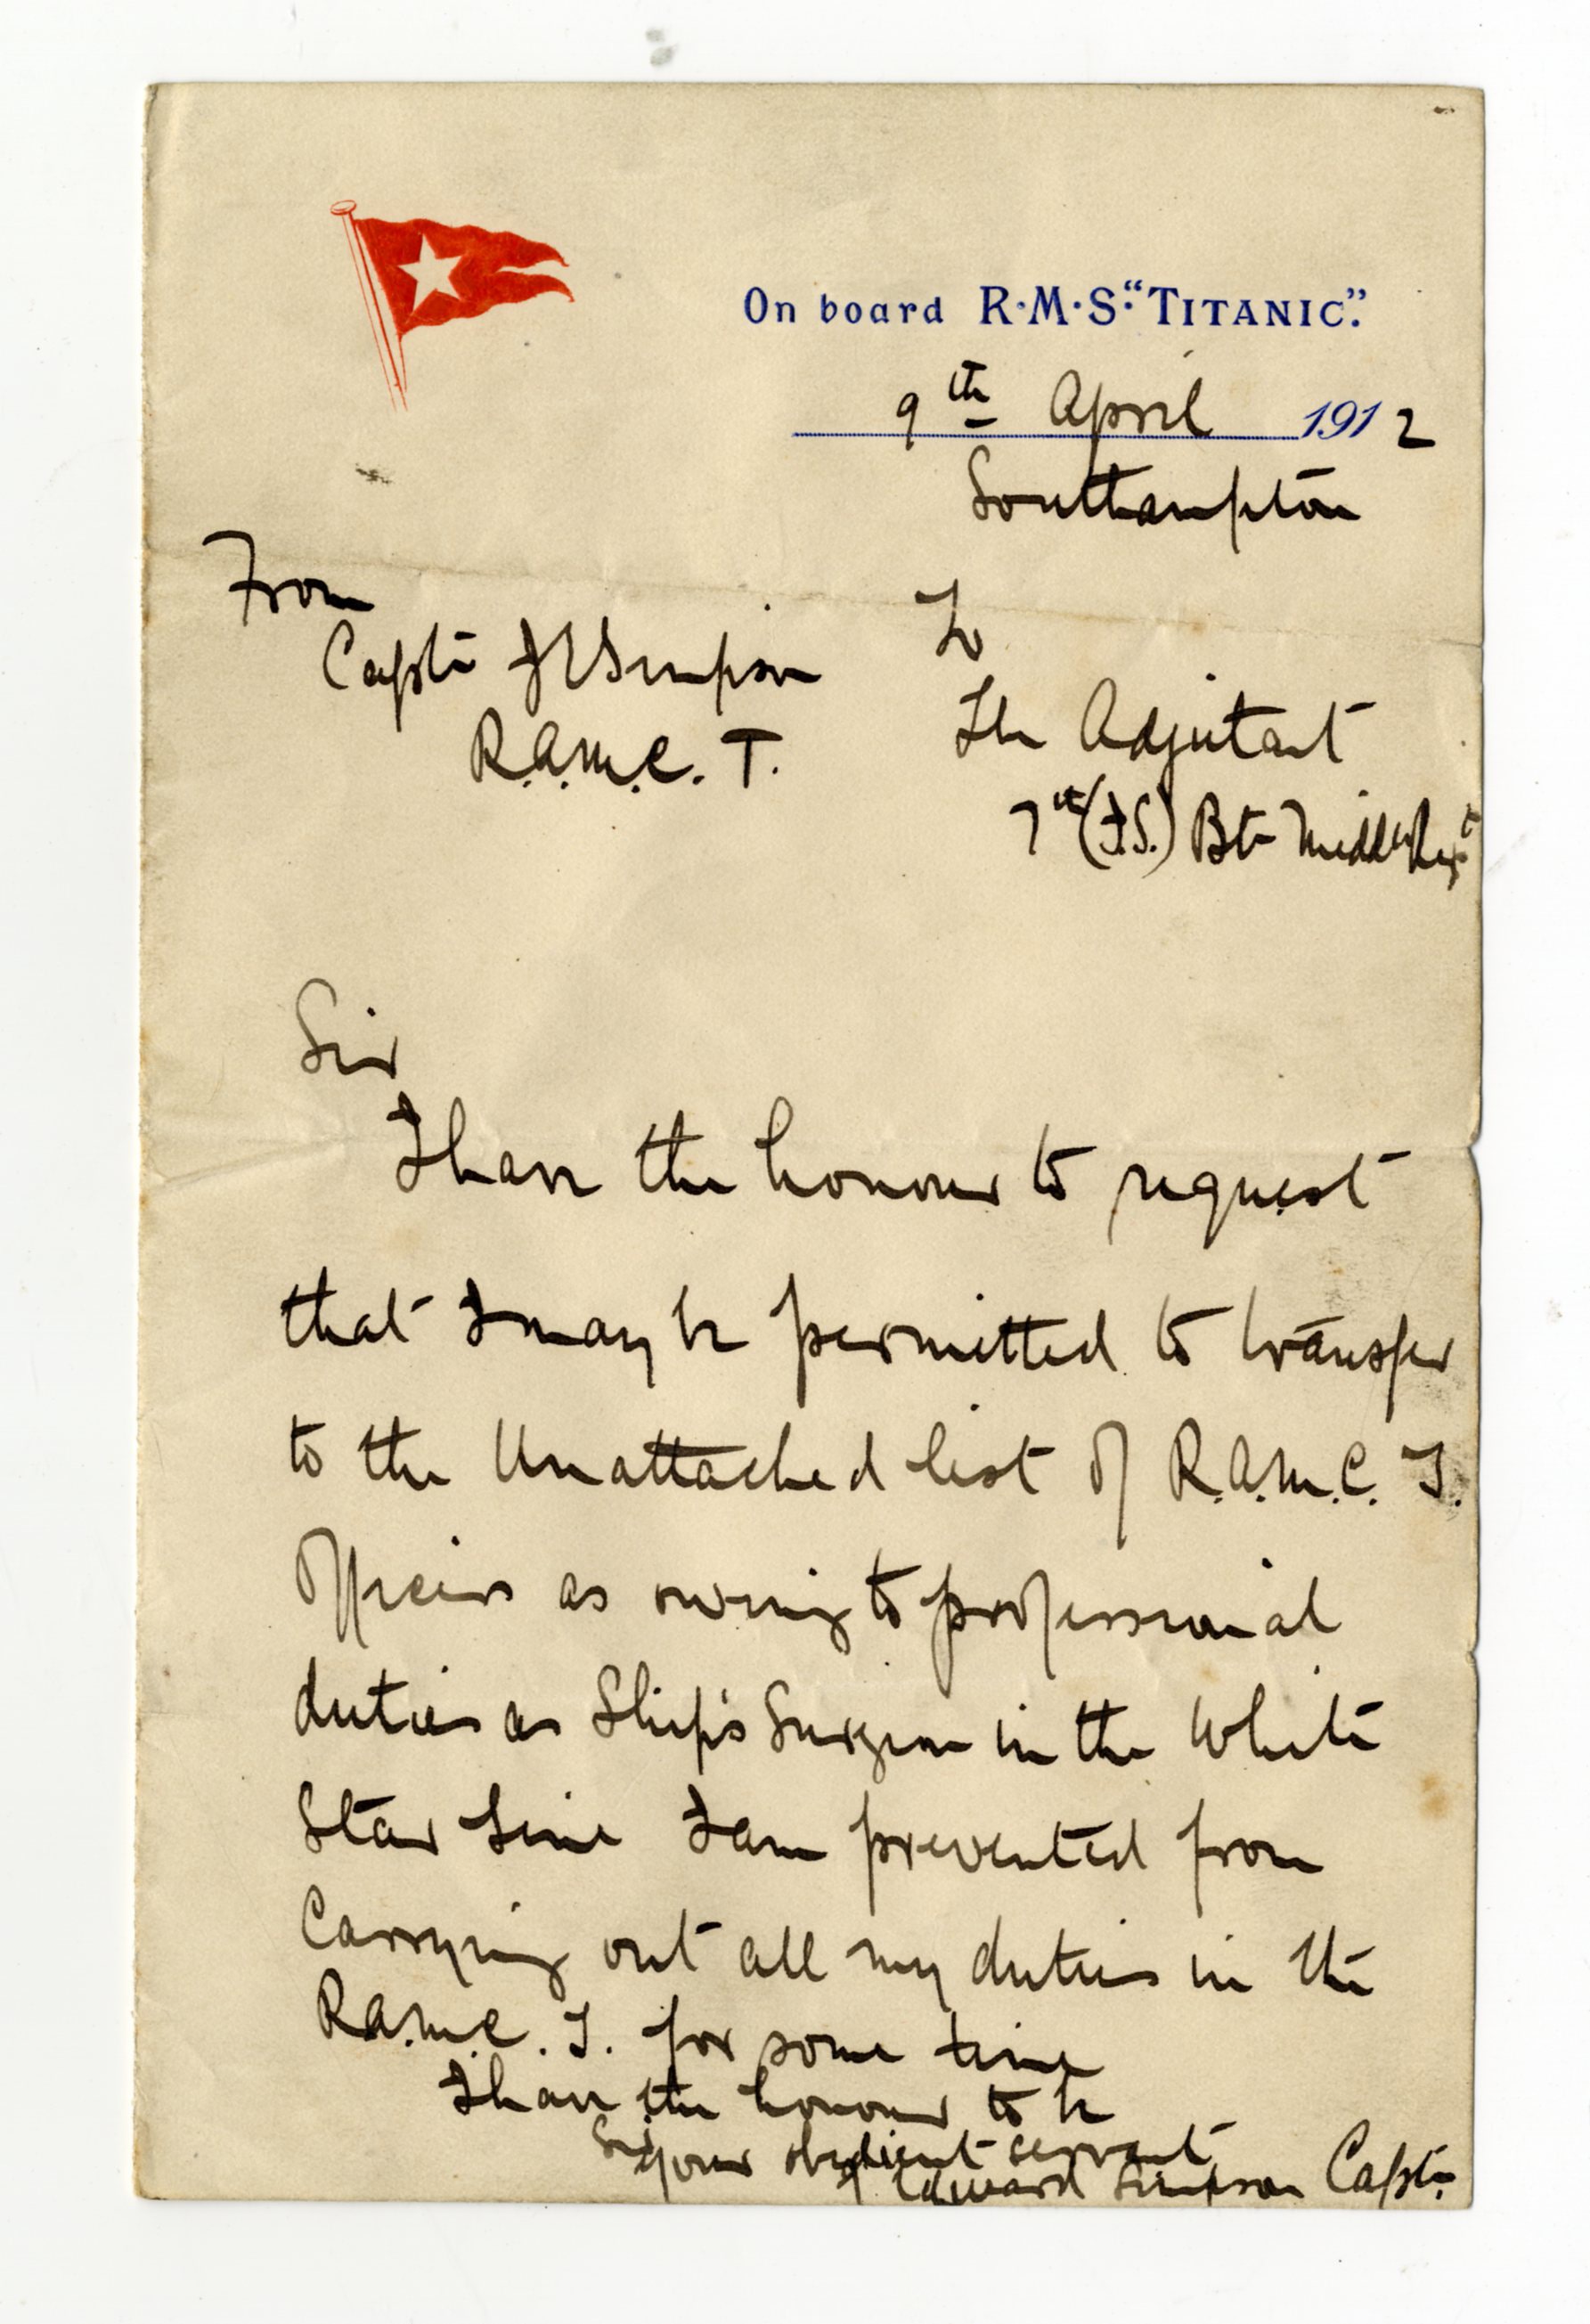 On board R·M·S· "TITANIC".
9th April 1912
Southampton
From
Captn J E Simpson
R.A.M.C. T.
To
The Adjutant
7th (F.S.) Bn Middx Regt
Sir
I have the honour to request
that I may be permitted to transfer
to the Unattached list of R.A.M.C. T.
Officers as owing to professional
duties as Ship's Surgeon in the White
Star Line I am prevented from
Carrying out all my duties in the
R.A.M.C. T. for some time
I have the honour to be
Sir
your obedient servant
J Edward Simpson Captn.